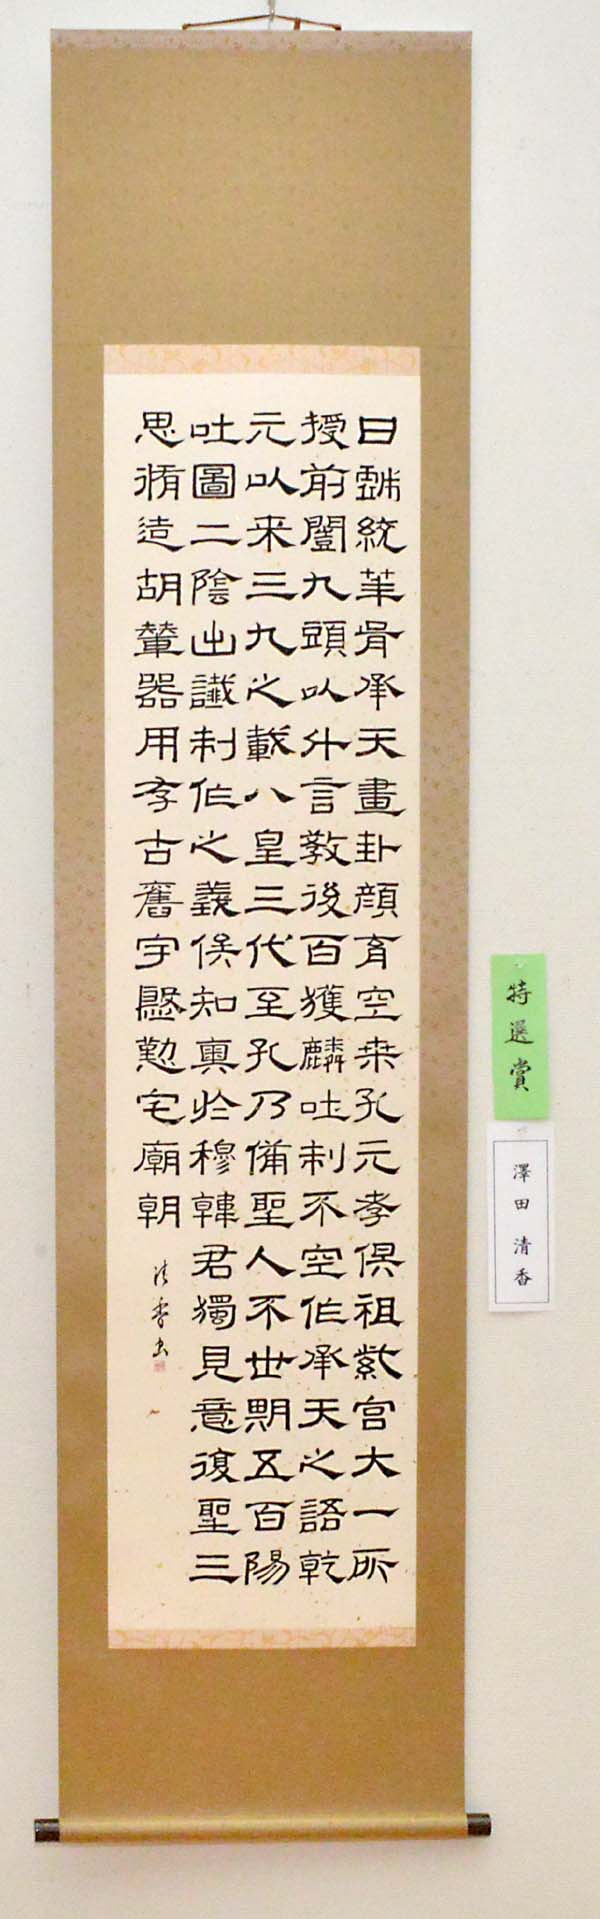 曰戲統華胥承天畫卦顔育空桒孔元孝俱祖紫宮大一所
授前闓九頭以升言教後百獲麟吐制不空作承天之語乾
元以来三九之載八皇三代至孔乃備聖人不世期五百陽
吐圖二陰出讖制作之義俟知奧於穆韓君獨見意復聖三
思脩造胡輦器用存古舊宇慇懃宅廟朝
清香書
特選賞
澤田清香